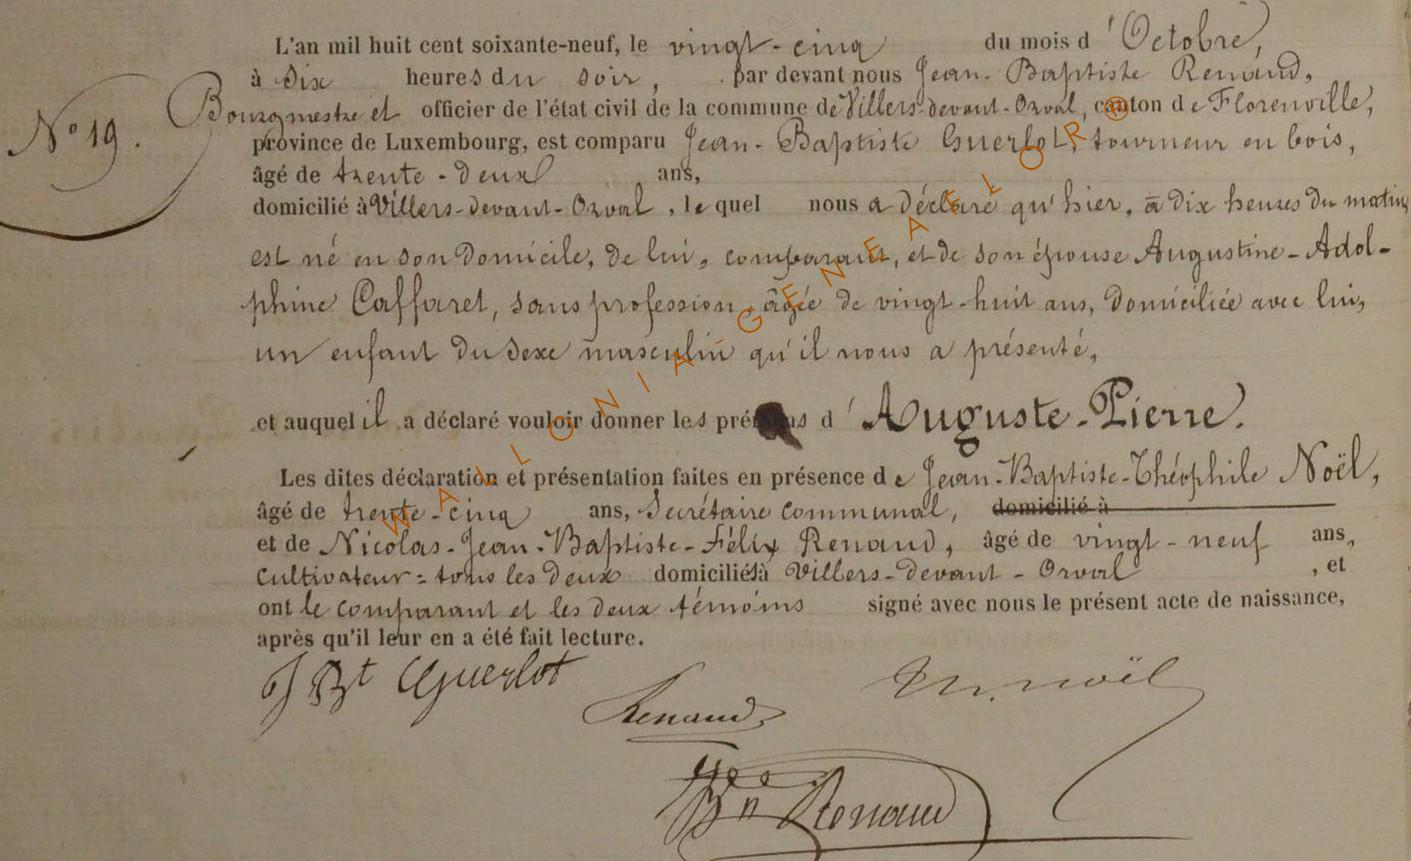 L'an mil huit cent soixante-neuf, le vingt-cinq du mois d'Octobre,
à six heures du soir, par devant nous Jean-Baptiste Renaud,
N° 19.
Bourgmestre et officier de l'état civil de la commune de Villers-devant-Orval, canton de Florenville,
province de Luxembourg, est comparu Jean-Baptiste Guerlot, tourneur en bois,
âgé de trente-deux ans,
domicilié à Villers-devant-Orval, lequel nous a déclaré qu'hier, à dix heures du matin,
est né en son domicile, de lui, comparant, et de son épouse Augustine-Adol-
phine Caffaret, sans profession, âgée de vingt-huit ans, domiciliée avec lui,
un enfant du sexe masculin qu'il nous a présenté,
et auquel il a déclaré vouloir donner les prénoms d'Auguste-Pierre.
Les dites déclaration et présentation faites en présence de Jean-Baptiste-Théophile Noël,
âgé de trente-cinq ans, Secrétaire communal, domicilié à
et de Nicolas-Jean-Baptiste-Félix Renaud, âgé de vingt-neuf ans,
Cultivateur = tous les deux domiciliés à Villers-devant-Orval, et
ont le comparant et les deux témoins signé avec nous le présent acte de naissance,
après qu'il leur en a été fait lecture.
J Bt Guerlot
Renaud
noël
Renaud
WALLONIA-GENEAFLOR®